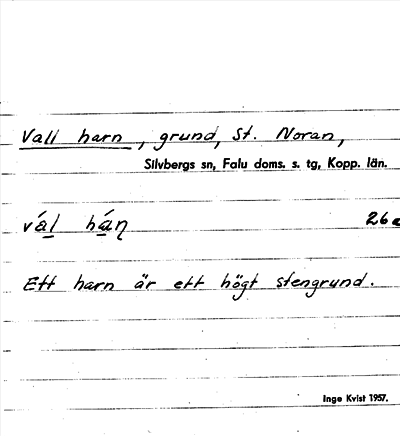 Vall harn, grund, St. Noran,
Silvbergs sn, Falu doms. s. tg, Kopp. län.
vá̲l há̲ɳ 26a
Ett harn är ett högt stengrund.
Inge Kvist 1957.